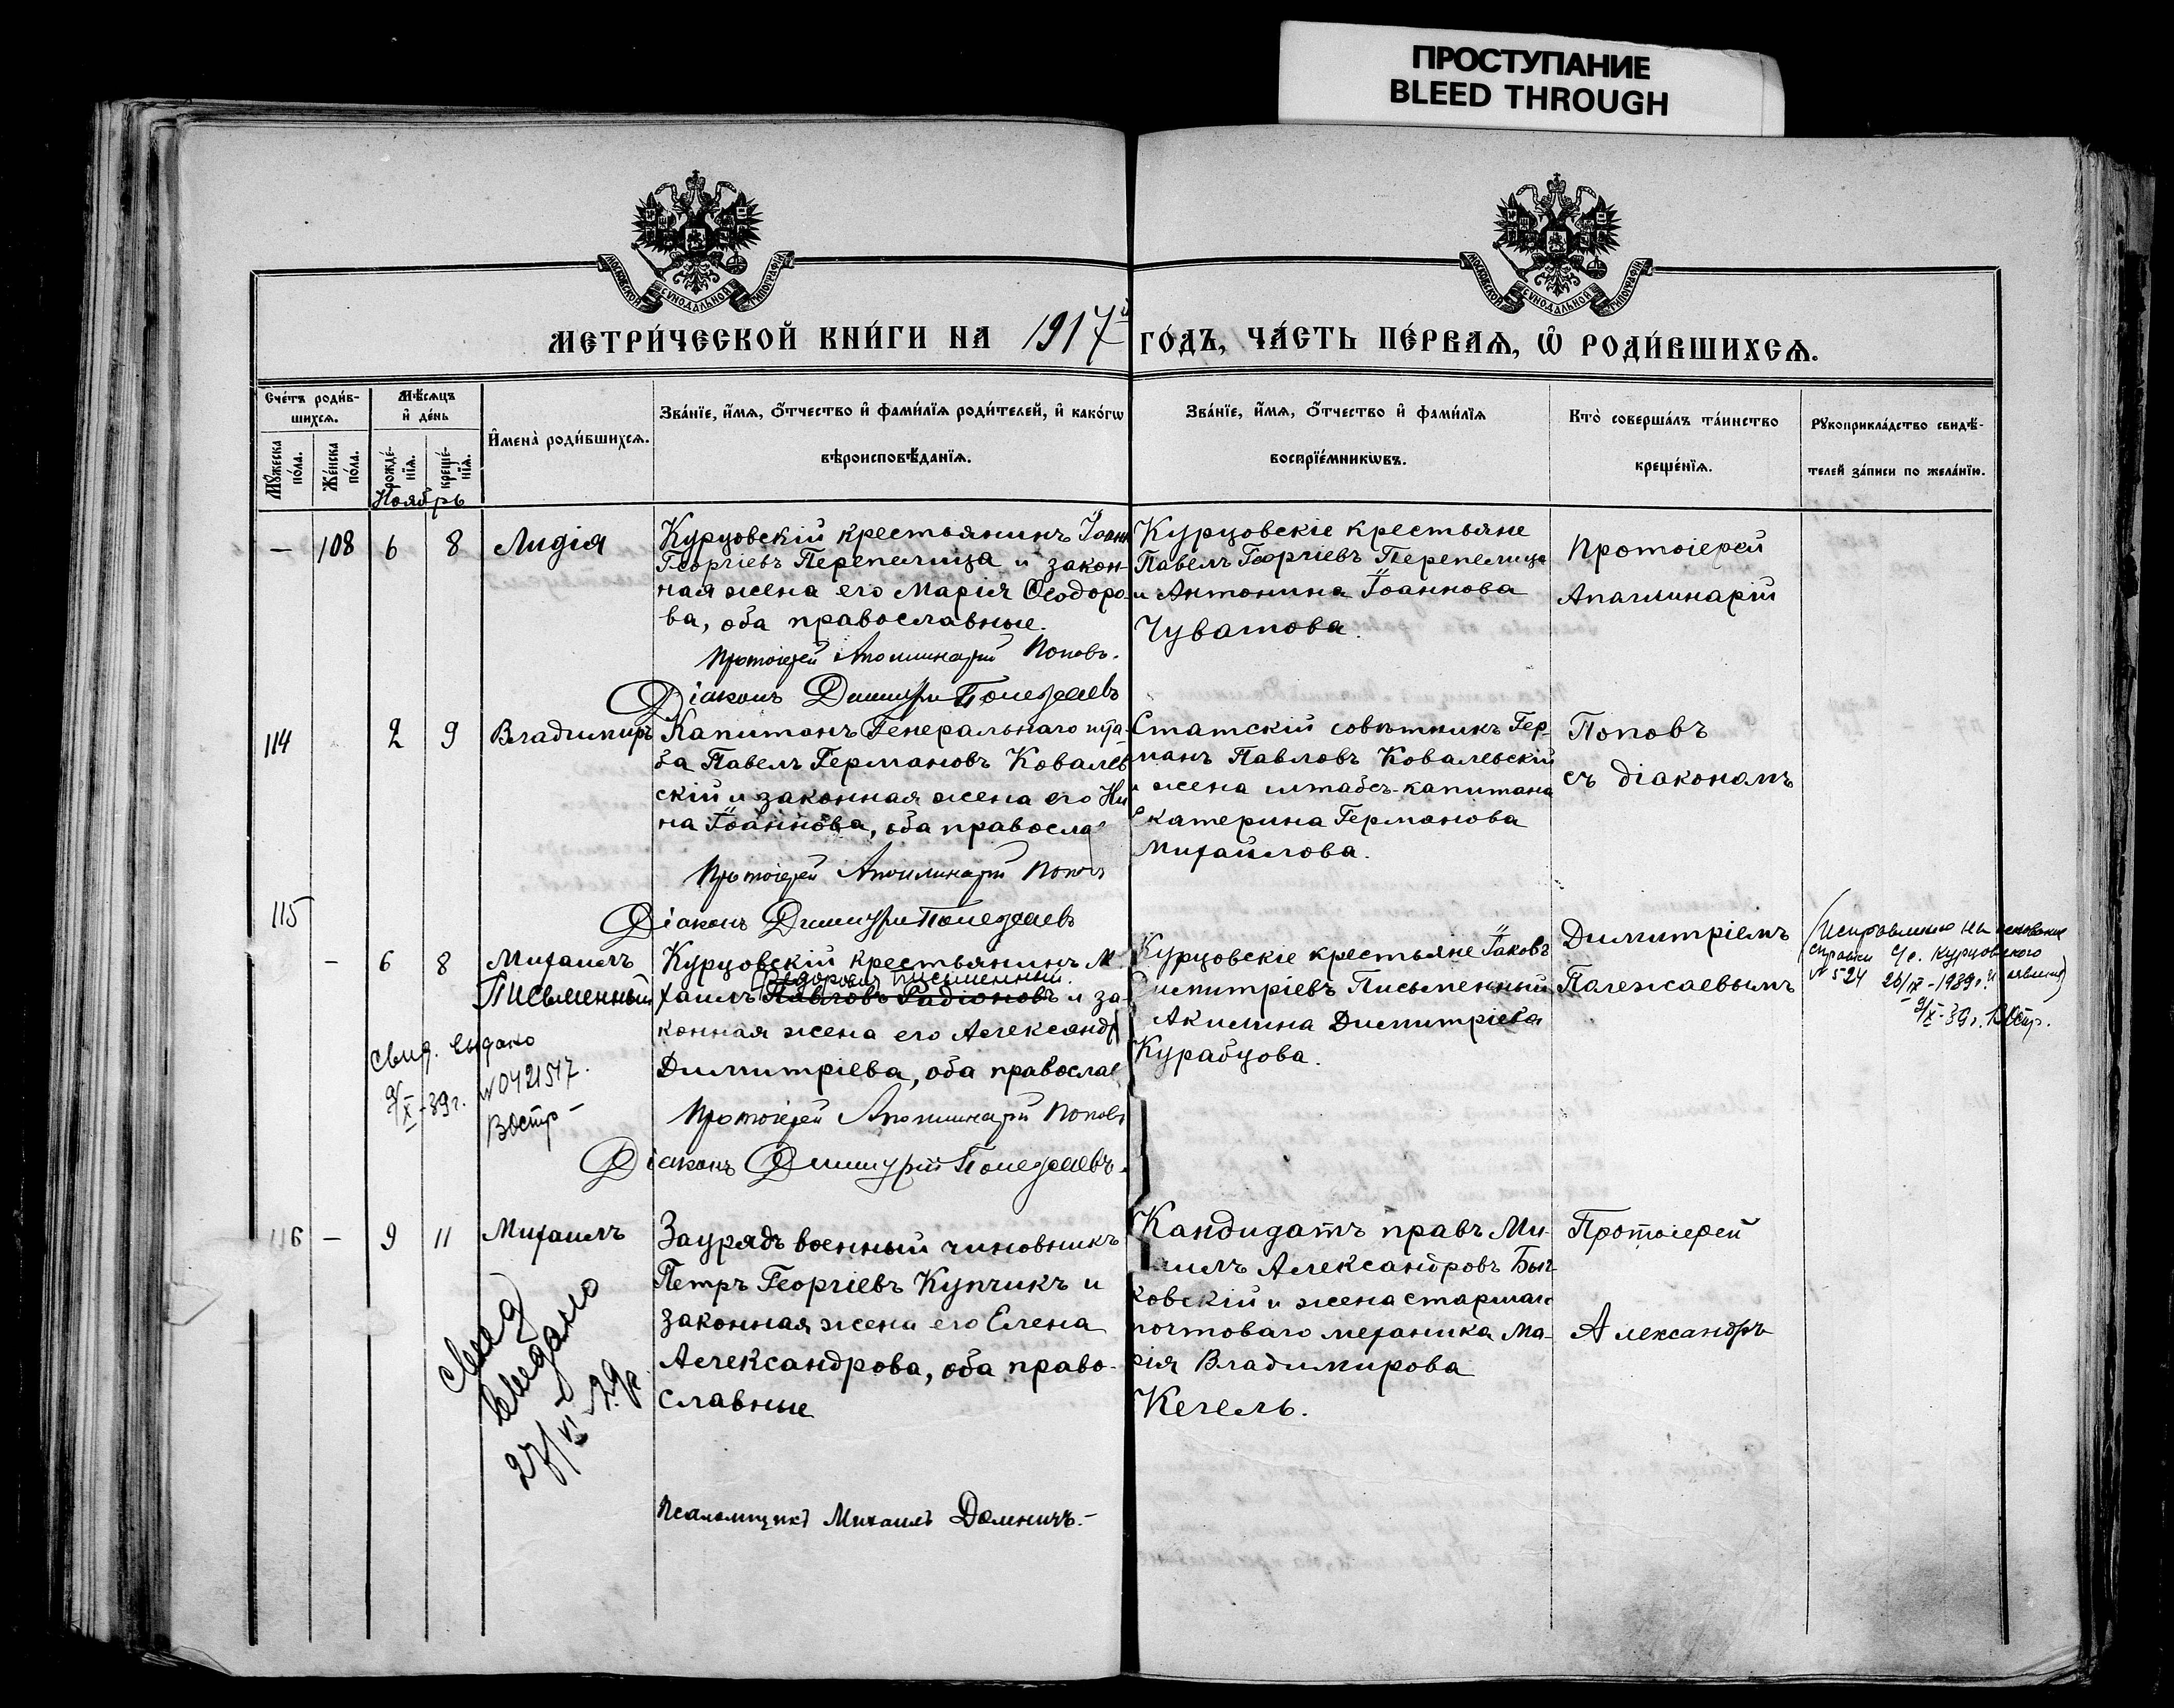 ПРОСТУПАНИЕ
BLEED THROUGH
МОСКОВСКОЙ СѴНОДАЛЬНОЙ ТИПОГРАФІИ
МОСКОВСКОЙ СѴНОДАЛЬНОЙ ТИПОГРАФІИ
МЕТРИ́ЧЕСКОЙ КНИ́ГИ НА 1917й ГО́ДЪ, ЧА́СТЬ ПЕ́РВАѦ, Ѡ҆ РОДИ́ВШИХСѦ.
Сче́тъ роди́в-
шихсѧ.
Мꙋ́жеска по́ла.
Же́нска по́ла.
Мѣ́сѧцъ
и҆ де́нь
рожде́-
нїѧ.
креще́-
нїѧ.
Ноябрь
И҆мена̀ роди́вшихсѧ.
Зва́нїе, и҆́мѧ, ѻ҆́тчество и҆ фами́лїѧ роди́телей, и҆ како́гѡ
вѣроисповѣ́данїѧ.
Зва́нїе, и҆́мѧ, ѻ҆́тчество и҆ фами́лїѧ
воспрїе́мникѡвъ.
Кто̀ соверша́лъ та́инство
креще́нїѧ.
Рꙋкоприкла́дство свидѣ́-
телей за́писи по жела́нїю.
— 108 6 8 Лидія
Курцовскій крестьянинъ Іоаннъ
Георгіевъ Перепелица и закон-
ная жена его Марія Ѳеодоро-
ва, оба православные.
Протоіерей Аполинарій Поповъ.
Діаконъ Димитрій Полежаевъ
Курцовскіе крестьяне
Павелъ Георгіевъ Перепелица
и Антонина Іоаннова
Чуватова.
Протоіерей
Апаллинарій
114 2 9 Владимиръ
Капитанъ Генеральнаго шта-
ба Павелъ Германовъ Ковалев-
скій и законная жена его Ни
на Іоаннова, оба правосла
Протоіерей Аполинарій Поповъ
Діаконъ Димитрій Полежаевъ
Статскій совѣтникъ Гер-
манъ Павловъ Ковалевскій
и жена штабсъ-капитана
Екатерина Германова
Михайлова.
Поповъ
съ діакономъ
115
— 6 8 Михаилъ
Письменный
Курцовскій крестьянинъ М
Федоровъ Письменный
хаилъ Павловъ Радіоновъ и за-
конная жена его Александр
Димитріева, оба православ
Протоіерей Аполинарій Поповъ
Діаконъ Димитрій Полежаевъ.
Свид. выдано
9/X-39г. №0421517.
Курцовскіе крестьяне Іаковъ
Димитріевъ Письменный
Акилина Димитріева
Курабцова.
Димитріемъ
Палежаевымъ
(Исправлено на основание
справки С/с. Курцовского
№ 524 26/IX-1939г. и
9/X-39г.
116 — 9 11 Михаилъ
Зауряд военный чиновникъ
Петръ Георгіевъ Купчикъ и
законная жена его Елена
Александрова, оба право-
славные
Псаломщикъ Михаилъ
Свид
выдано
27/VI-29г.
Кандидатъ правъ Ми-
аилъ Александровъ Бы
ковскій и жена старшаг
почтоваго механика Ма-
рія Владимирова
Кегель.
Протоіерей
Александръ